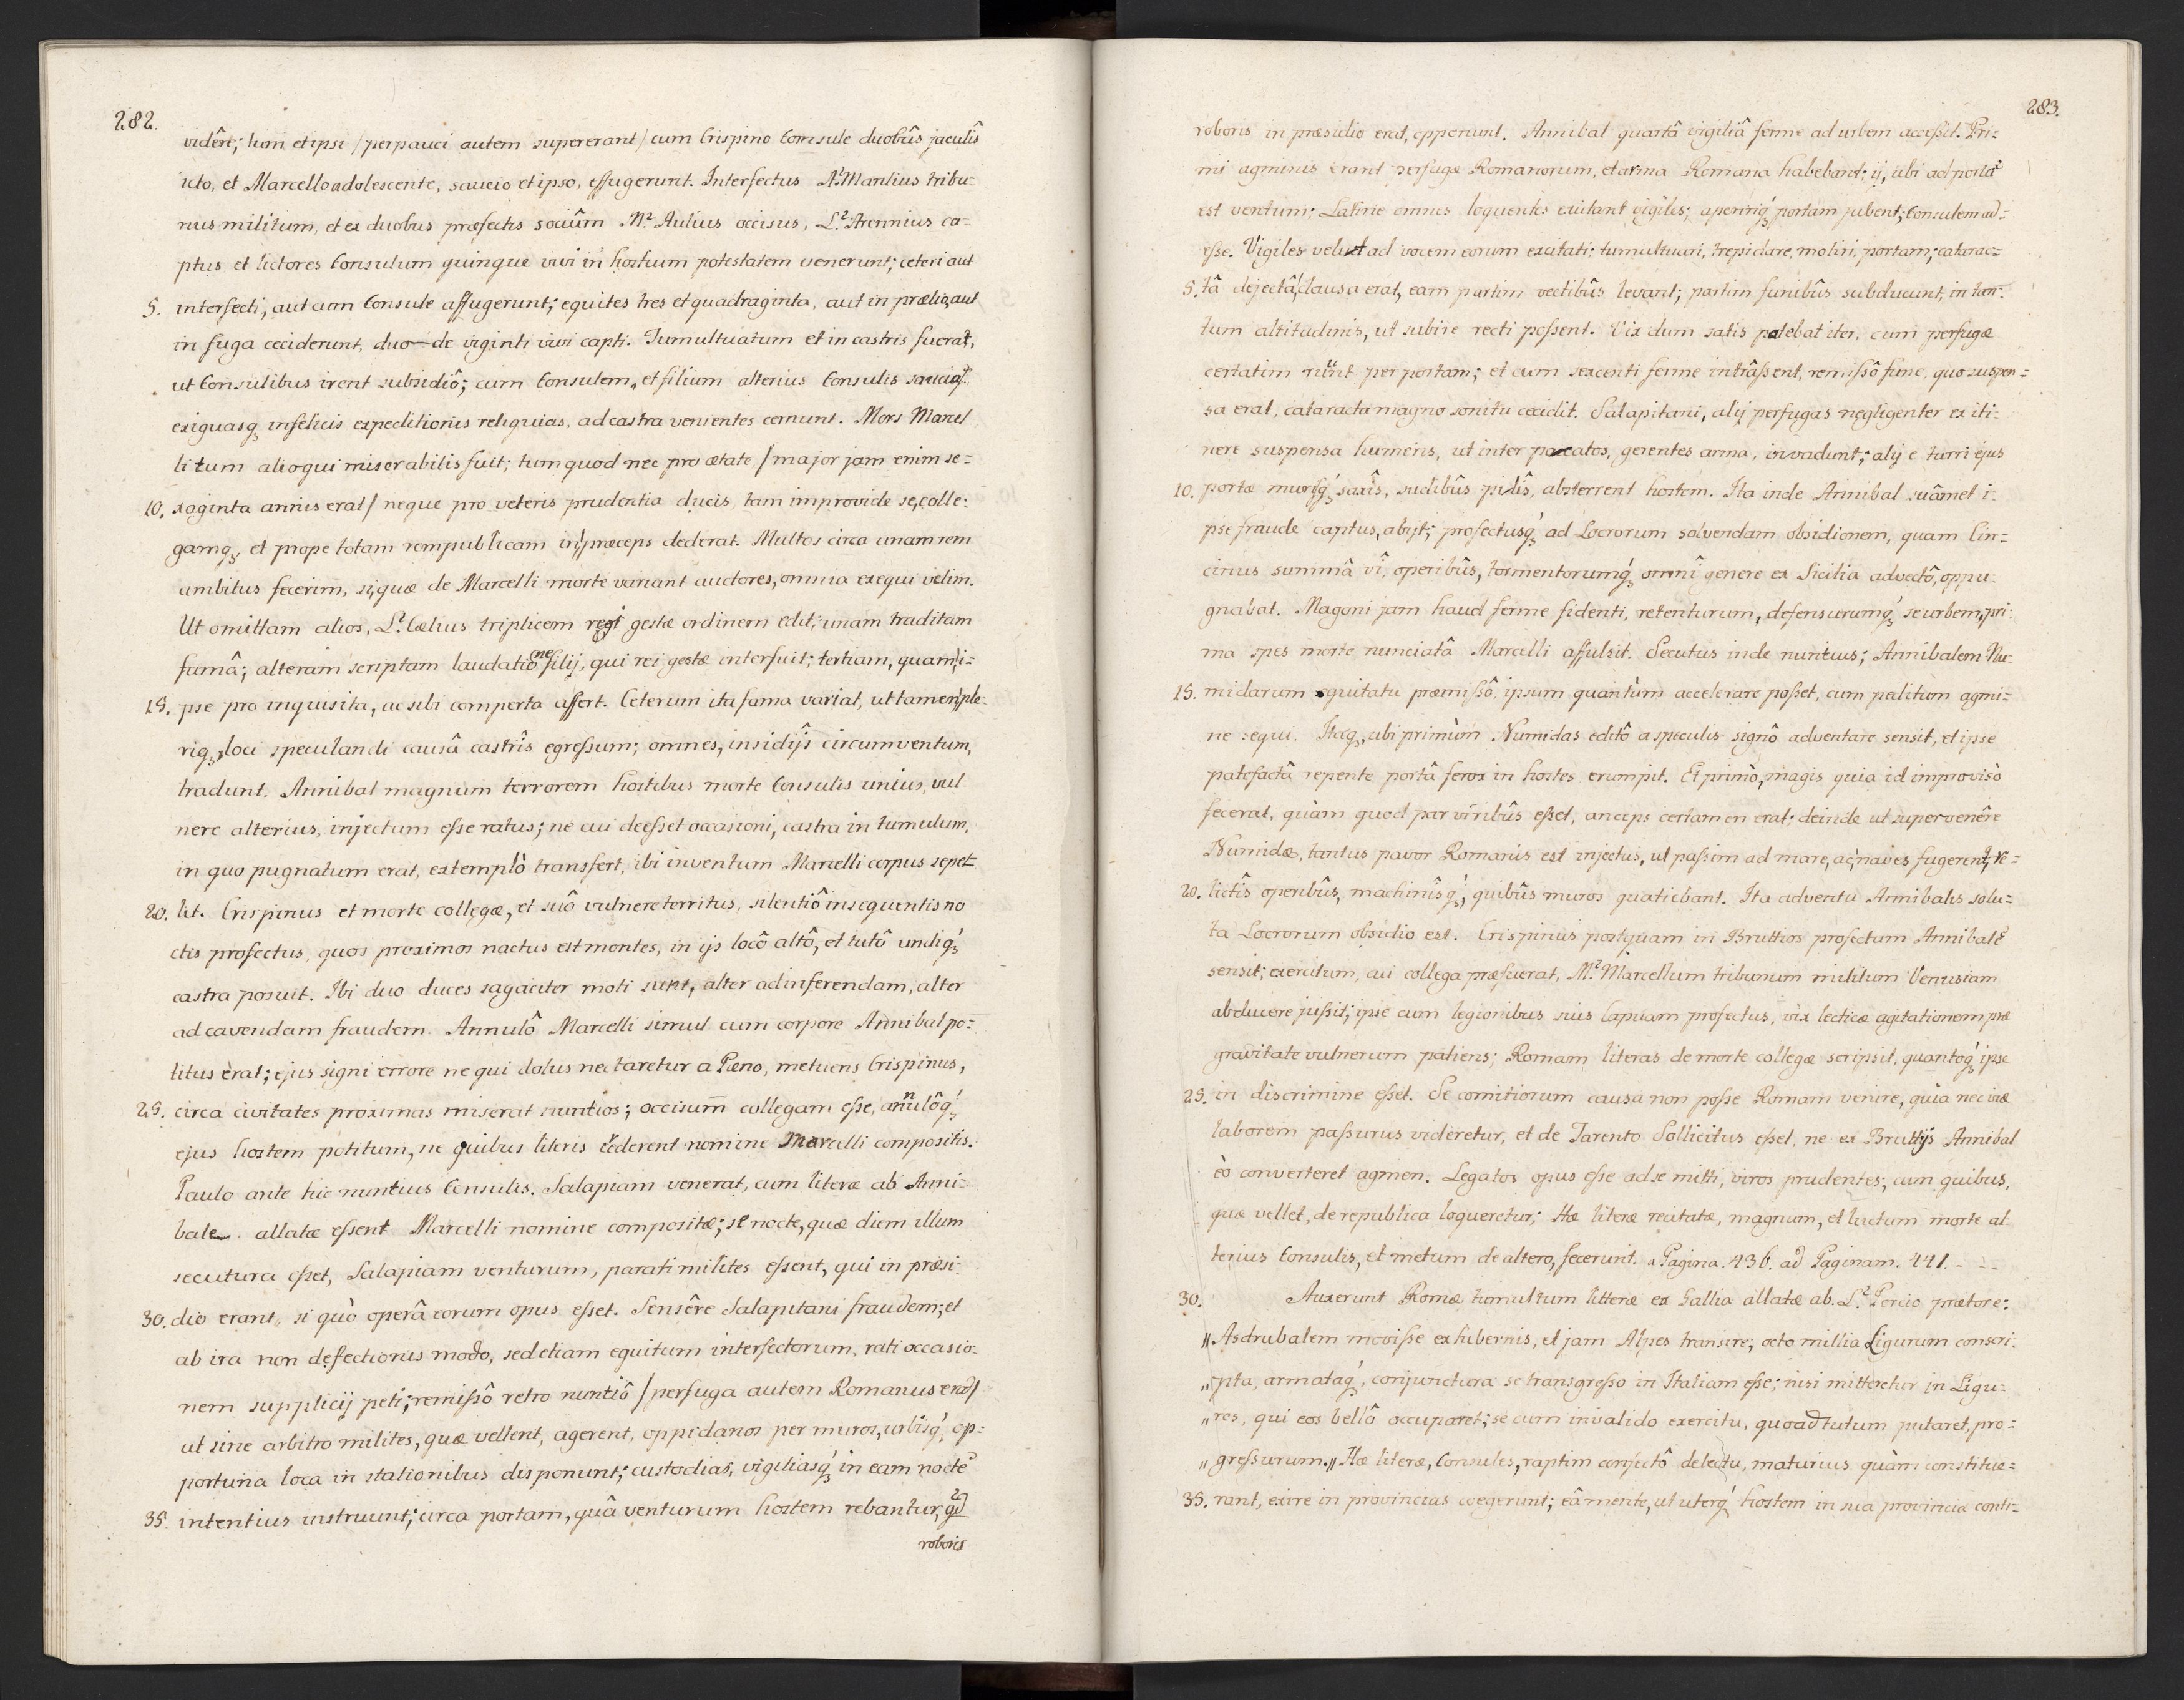 282.
vidêre; tum et ipsi / perpauci autem supererant / cum Crispino Consule duobûs jaculîs
icto, et Marcello adolescente, saucio et ipso, effugerunt. Interfectus A.² Manlius tribu-
nus militum, et ex duobus præfectis sociûm M.² Aulius occisus, L.² Arennius ca-
ptus et lictores Consulum quinque vivi in hostium potestatem venerunt; ceteri aut
5. interfecti, aut cum Consule effugerunt; equites tres et quadraginta, aut in prælio, aut
in fuga ceciderunt, duo-de viginti vivi capti. Tumultuatum et in castris fuerat,
ut Consulibus irent subsidiô; cum Consulem, et filium alterius Consulis saucios,
exiguasq; infelicis expeditionis reliquias, ad castra venientes cernunt. Mors Marcel
li tum alioqui miserabilis fuit; tum quod nec pro ætate / major jam enim se-
10. xaginta annis erat / neque pro veteris prudentia ducis, tam improvide se, colle-
gamq; et prope totam rempublicam in præceps dederat. Multos circa unam rem
ambitus fecerim, si, quæ de Marcelli morte variant auctores, omnia exequi velim.
Ut omittam alios, L.² Cælius triplicem rei gestæ ordinem edit; unam traditam
famâ; alteram scriptam laudatione filij, qui rei gestæ interfuit; tertiam, quam i-
15. pse pro inquisita, ac sibi comperta affert. Ceterum ita fama variat, ut tamen ple-
riq; loci speculandi causâ castrîs egressum; omnes, insidijs circumventum,
tradunt. Annibal magnum terrorem hostibus morte Consulis unius, vul
nere alterius, injectum esse ratus; ne cui deesset occasioni, castra in tumulum,
in quo pugnatum erat, extemplò transfert, ibi inventum Marcelli corpus sepet-
20. lit. Crispinus et morte collegæ, et suô vulnere territus, silentiô insequentis no
ctis profectus, quos proximos nactus est montes, in ijs locô altô, et tutô undiq;
castra posuit. Ibi duo duces sagaciter moti sunt, alter ad inferendam, alter
ad cavendam fraudem. Annulô Marcelli simul cum corpore Annibal po-
titus erat; ejus signi errore ne qui dolus nectaretur a Pæno, metuens Crispinus,
25. circa civitates proximas miserat nuntios; occisum collegam esse, annulôq;
ejus hostem potitum, ne quibus literis crederent nomine Marcelli compositis.
Paulo ante hic nuntius Consulis. Salapiam venerat, cum literæ ab Anni-
bale allatæ essent Marcelli nomine compositæ; se nocte, quæ diem illum
secutura esset, Salapiam venturum, parati milites essent, qui in præsi-
30. dio erant, si quò operâ eorum opus esset. Sensêre Salapitani fraudem; et
ab ira non defectionis modo, sed etiam equitum interfectorum, rati occasio-
nem supplicij peti; remissô retro nuntiô / perfuga autem Romanus erat /
ut sine arbitro milites, quæ vellent, agerent, oppidanos per muros, urbisq; op-
portuna loca in stationibus disponunt; custodias, vigiliasq; in eam nocte
35. intentius instruunt; circa portam, quâ venturum hostem rebantur, qd
roboris
283.
roboris in præsidio erat, opponunt. Annibal quartâ vigiliâ ferme ad urbem accessit. Pri-
mi agminis erant perfugæ Romanorum, et arma Romana habebant; ij, ubi ad porta
est ventum; Latine omnes loquentes excitant vigiles; apeririq; portam jubent; Consulem ad-
esse. Vigiles velut ad vocem eorum excitati: tumultuari, trepidare, moliri portam; catarac-
5. tâ dejectâ clausa erat, eam partim vectibûs levant; partim funibûs subducunt, in tan-
tum altitudinis, ut subire recti possent. Vix dum satis patebat iter, cum perfugæ
certatim ruunt per portam; et cum sexcenti ferme intrâssent, remissô fune, quo suspen-
sa erat, cataracta magno sonitu cecidit. Salapitani, alij perfugas negligenter ex iti-
nere suspensa humeris, ut inter pacatos, gerentes arma, invadunt; alij e turri ejus
10. portæ murisq; saxîs, sudibûs pilîs, absterrent hostem. Ita inde Annibal suâmet i-
pse fraude captus, abijt; profectusq; ad Locrorum solvendam obsidionem, quam Cin-
cinus summâ vî, operibûs, tormentorumq; omnî genere ex Sicilia advectô, oppu-
gnabat. Magoni jam haud ferme fidenti, retenturum, defensurumq; se urbem, pri-
ma spes morte nunciatâ Marcelli affulsit. Secutus inde nuntius; Annibalem Nu-
15. midarum equitatu præmissô, ipsum quantùm accelerare posset, cum peditum agmi-
ne sequi. Itaq; ubi primùm Numidas editô a speculis signô adventare sensit, et ipse
patefactâ repente portâ ferox in hostes erumpit. Et primò, magis quia id improvisò
fecerat, quàm quod par viribûs esset, anceps certamen erat; deinde ut supervenêre
Numidæ, tantus pavor Romanis est injectus, ut passim ad mare, ac naves fugerent, re-
20. lictîs operibûs, machinîsq; quibûs muros quatiebant. Ita adventu Annibalis solu-
ta Locrorum obsidio est. Crispinus postquam in Bruttios profectum Annibale
sensit; exercitum, cui collega præfuerat, M.² Marcellum tribunum militum Venusiam
abducere jussit; ipse cum legionibus suis Capuam profectus, vix lecticæ agitationem præ
gravitate vulnerum patiens; Romam literas de morte collegæ scripsit, quantoq; ipse
25. in discrimine esset. Se comitiorum causa non posse Romam venire, quia nec viæ
laborem passurus videretur, et de Tarento Sollicitus esset, ne ex Bruttijs Annibal
eò converteret agmen. Legatos opus esse ad se mitti, viros prudentes, cum quibus,
quæ vellet, de republica loqueretur; Hæ literæ recitatæ, magnum, et luctum morte al-
terius Consulis, et metum de altero, fecerunt. a Pagina. 436. ad Paginam. 441. - - -
30. Auxerunt Romæ tumultum litteræ ex Gallia allatæ ab. L.² Porcio prætore:
„ Asdrubalem movisse ex hibernis, et jam Alpes transire; octo millia Ligurum conscri-
„ pta, armataq; conjunctura se transgresso in Italiam esse; nisi mitteretur in Ligu-
„ res, qui eos bellô occuparet; se cum invalido exercitu, quoad tutum putaret, pro-
„ gressurum. „ Hæ literæ, Consules, raptim confectô delectu, maturius quàm constitue-
35. rant, exire in provincias coegerunt; eâ mente, ut uterq; hostem in sua provincia conti-